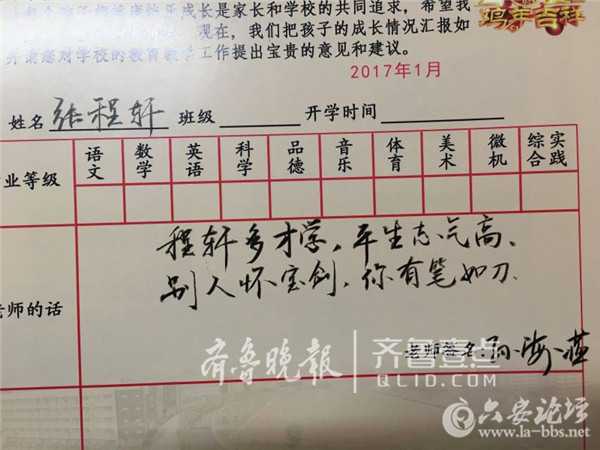 快乐成长是家长和学校的共同追求，希望我
现在，我们把孩子的成长情况汇报如
对学校的教育教学工作提出宝贵的意见和建议。
鸡年吉祥
2017年1月
姓名 张程轩 班级 开学时间
业等级 语文 数学 英语 科学 品德 音乐 体育 美术 微机 综合实践
程轩多才学，平生志气高、
别人怀宝剑，你有笔如刀.
老师的话
老师签名：孙海燕
齐鲁晚报 齐鲁壹点
QLID.COM
六安论坛
www.la-bbs.net